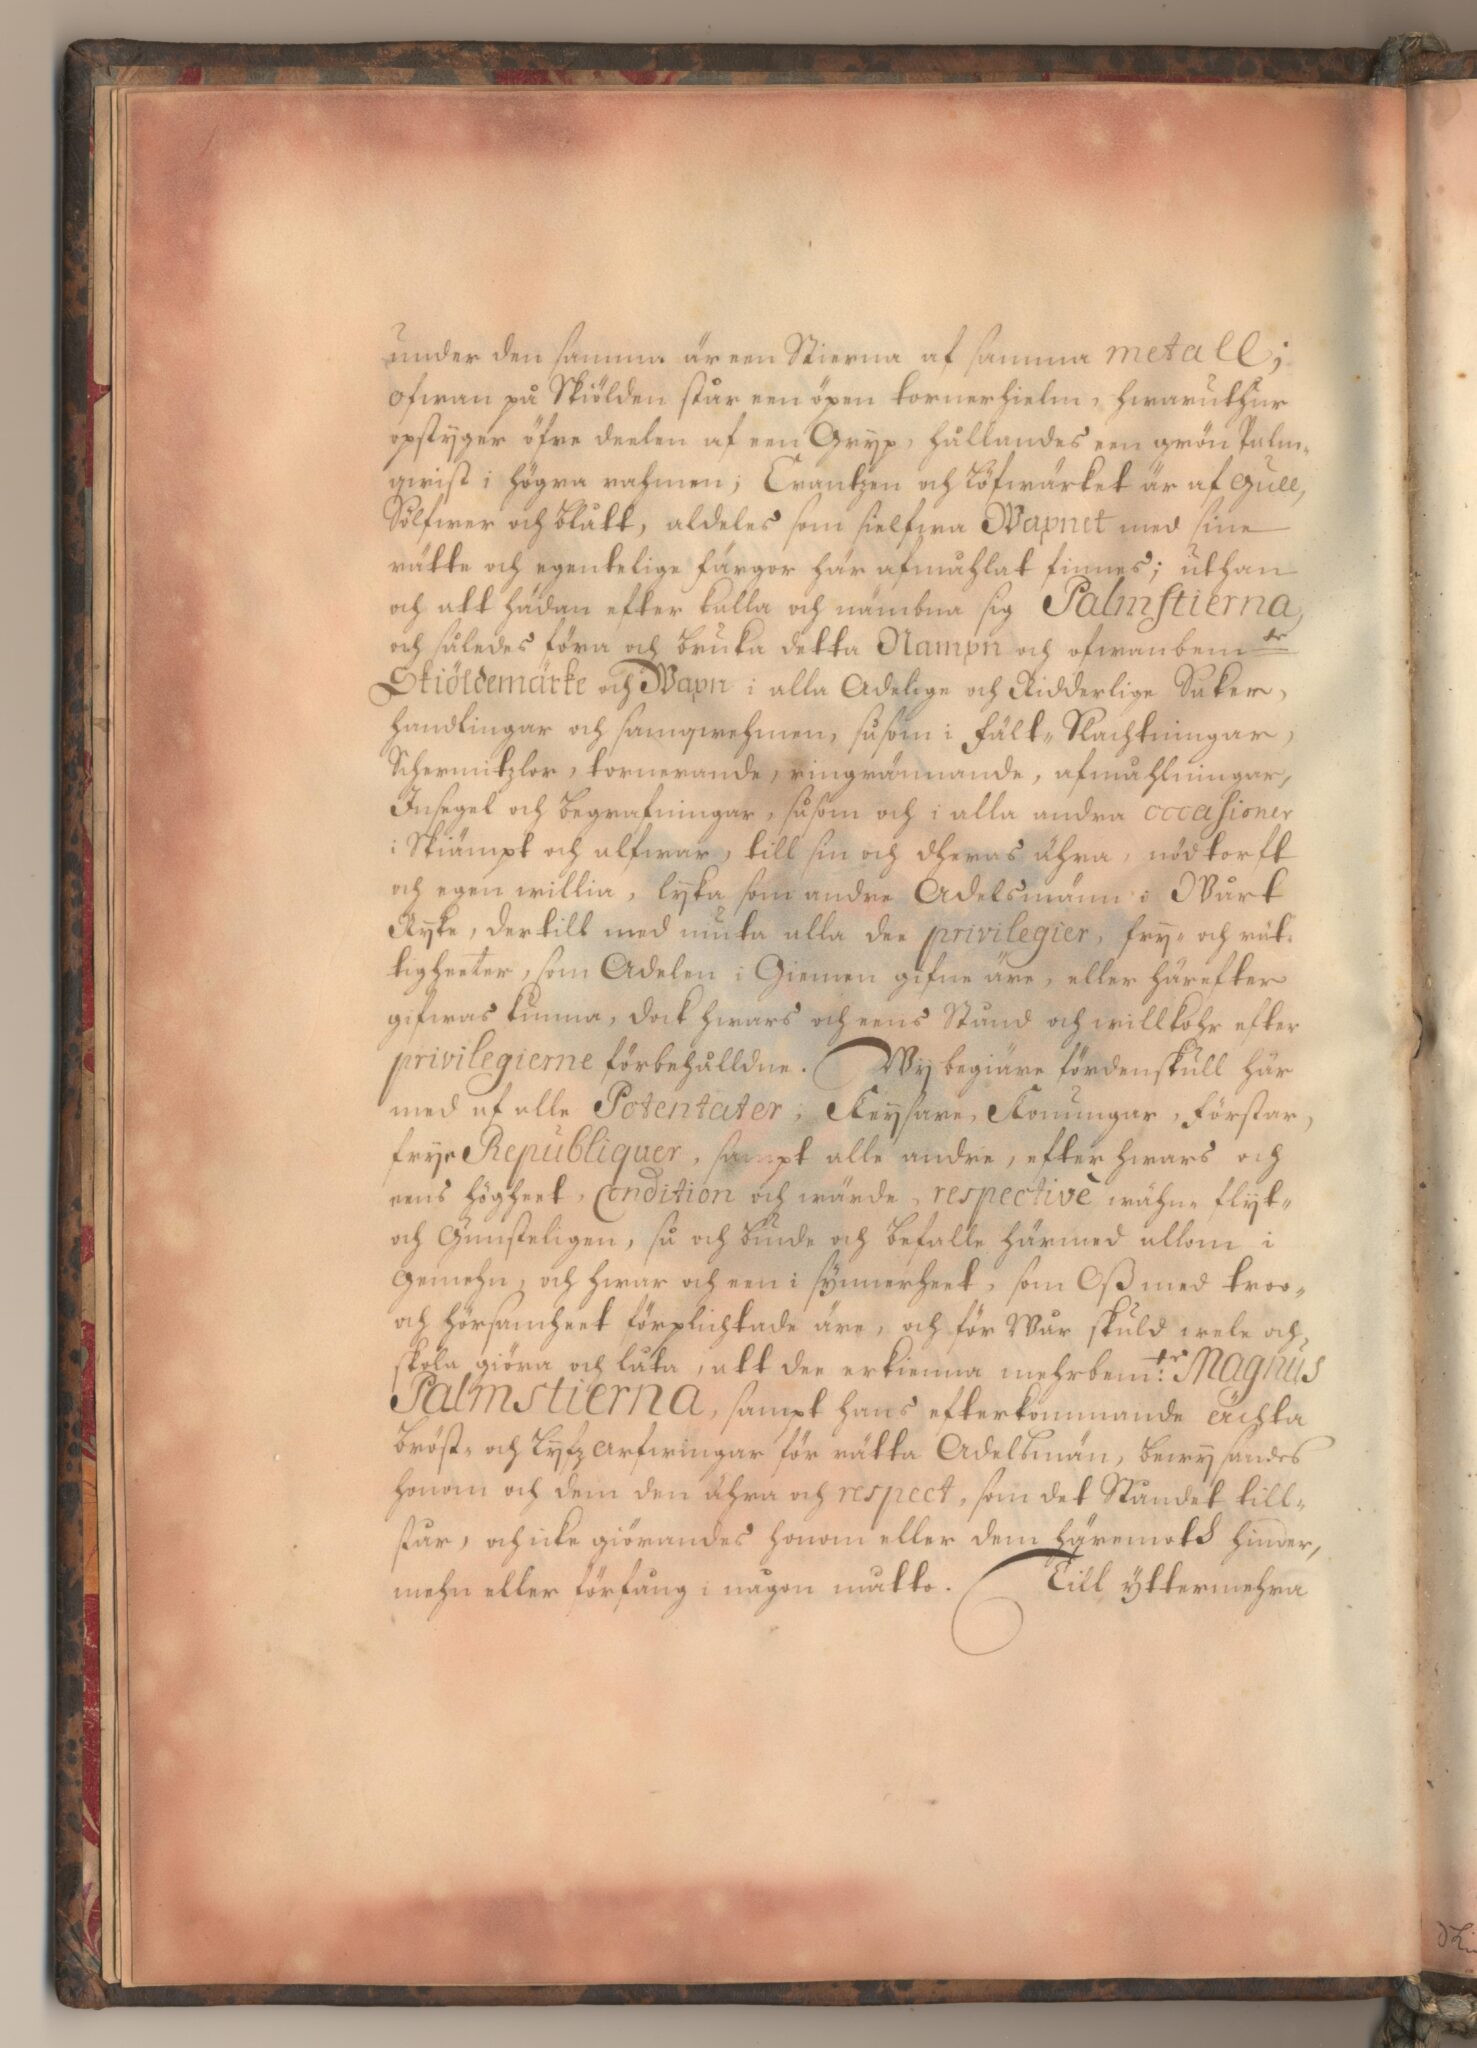 under den samma är een Stierna af samma metall;
ofwan på Skiölden står een öpen tornerhielm, hwaruthur
opstyger öfre deelen af een Gryp, hållandes een grön Palm-
qwist i högra ramen; Crantzen och Löfwärket är af Gull,
Sölfwer och blått, aldeles som sielfwa Wapnet med sine
rätte och egentelige färgor här afmåhlat finnes; uthan
och att hädan efter kalla och nämbna sig Palmstierna,
och således föra och bruka detta Nampn och ofwanbem:te
Skiöldemärke och Wapn i alla Adelige och Ridderlige Saker,
handlingar och samqwehmen, såsom i Fält-Slachtningar,
Schermitzlor, tornerande, ringrännande, afmåhlningar,
Insegel och begrafningar, såsom och i alla andra occasioner
i Skiämpt och alfwar, till sin och dheras ähra, nödtorft
och egen willia, lyka som andre Adelsmänn i Wårt
Ryke, dertill med niuta alla dee privilegier, fry- och rät-
tigheeter, som Adelen i Giemen gifne äre, eller härefter
gifwas kunna, dock hwars och eens Stånd och willkohr efter
privilegierne förbehålldne. Wy begiäre fördenskull här
med af alle Potentater, Keysare, Konungar, Förstar,
frye Republiquer, sampt alle andre, efter hwars och
eens högheet, Condition och wärde, respectivè wähn- flyt-
och Gunsteligen, så och biude och befalle härmed allom i
Gemehn, och hwar och een i synnerheet, som Oss med troo-
och hörsamheet förplichtade äre, och för Wår skuld wele och
skola giöra och låta, att dee erkienna mehrbem:te Magnus
Palmstierna, sampt hans efterkommande ächta
bröst- och Lyfz arfwingar för rätta Adelsmän, bewysandes
honom och dem den ähra och respect, som det Ståndet till-
står, och icke giörandes honom eller dem häremoth hinder,
mehn eller förfång i någon måtto. Till yttermehra